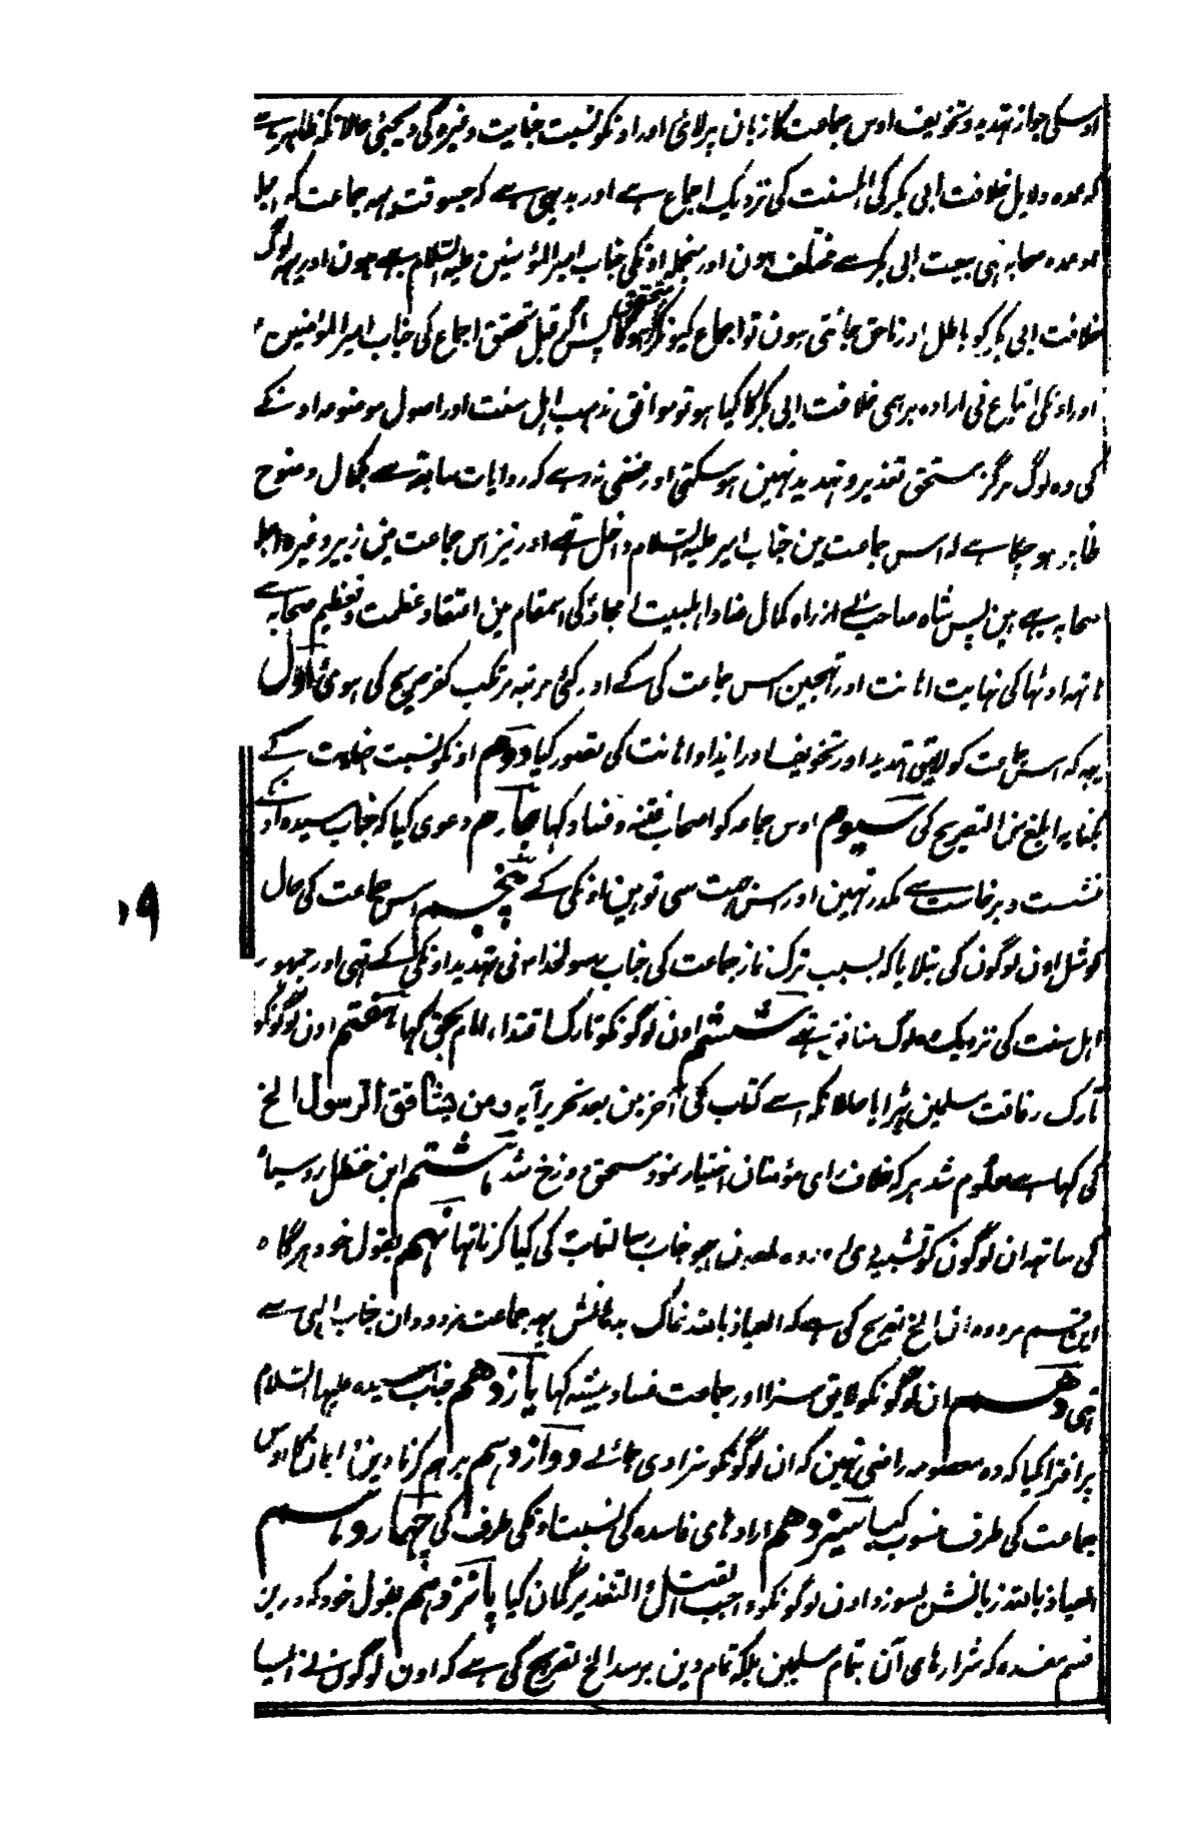 اوسکی جواز تہدید و تخویف اوس جماعت کا زبان پر لائی اور اونکو نسبت خیانت وغیرہ کی دیجیئی حالانکہ ظاہر ہے
کہ عمدہ دلایل خلافت ابی بکر کی اہلسنت کی نزدیک اجماع ہے اور بدیہی ہے کہ جسوقت وہ جماعت کہ اجلہ
و عمدہ صحابہ تہی بیعت ابی بکر سے مختلف ہون اور منجملہ اونکی جناب امیر المؤمنین علیہ السلام بہے ہون اور یہہ لوگ
خلافت ابی بکر کو باطل اور ناحق جانتی ہون تو اجماع کیونکر متحقق ہوگا پس اگر قبل تحقق اجماع کی جناب امیر المؤمنین ع
اور اونکی اتباع نی ارادہ برہمی خلافت ابی بکر کا کیا ہو تو موافق مذہب اہل سنت اور اصول موضوعہ اونکے
کی وہ لوگ ہرگز مستحق تعذیر و تہدید نہین ہو سکتی اور مخفی نرہے کہ روایات سابقہ سے بکمال وضوح
ظاہر ہو چکا ہے کہ اس جماعت مین جناب امیر علیہ السلام داخل تہے اور نیز اس جماعت مین زبیر وغیرہ اجلہ
صحابہ بہے ہین پس شاہ صاحب نے از راہ کمال عناد اہلبیت امجاد کی اسمقام مین اعتقاد عظمت و تعظیم صحابہ سے
ہاتہہ اوٹہا کی نہایت اہانت اور تہجین اس جماعت کی کے اور کئی مرتبہ مرتکب کفر صریح کی ہوئ اول
یہہ کہ اس جماعت کو لایق تہدید اور تخویف اور ایذا و اہانت کی تصور کیا دوم اونکو نسبت خیانت کے
بکنایہ ابلغ من التصریح کی سیوم اوس جماعہ کو اصحاب فتنہ و فساد کہا چہارم دعوی کیا کہ جناب سیدہ اونکے
نشست و برخاست سے مکدر تہین اور اس جہت سی توہین اونکی کے پنجم اس جماعت کی حال
کو مثل اون لوگون کی بتلایا کہ بسبب ترک نماز جماعت کی جناب رسولخدا ص نی تہدید اونکی کے تہی اور جمہور
اہل سنت کی نزدیک وہ لوگ منافق تہے ششم اون لوگونکو تارک اقتداء امام بحق کہا ہفتم اون لوگونکو
تارک رفاقت مسلمین ٹہرایا حالانکہ اسے کتاب کی آخر مین بعد تحریر آیہ و من یشاقق الرسول الخ
کی کہا ہے معلوم شد ہر کہ خلاف رای مؤمنان اختیار نمود مستحق دوزخ شد ہشتم ابن خطل روسیاہ
کی ساتہہ ان لوگون کو تشبیہ دی اور وہ ملعون ہجو جناب رسالتماب کی کیا کرتا تہا نہم بقول خود ہرگاہ
این قسم مردودان الخ تصریح کی ہے کہ العیاذ باللہ خاک بدہانش یہہ جماعت مردودان جناب الہی سے
تہی دہم ان لوگونکو لایق سزا اور جماعت فساد پیشہ کہا یازدہم جناب سیدہ علیہا السلام
پر افترا کیا کہ وہ معصومہ راضی نہین کہ ان لوگونکو سزا دی جائے دوازدہم برہم کرنا دین و ایمان کا اوس
جماعت کی طرف منسوب کیا سیزدہم ارادہای فاسدہ کی نسبت اونکی طرف کی چہاردہم
العیاذ باللہ زبانش بسوزد اون لوگونکو واجب القتل و التعذیر گمان کیا پانزدہم بقول خود کہ درین
قسم مفسدہ کہ شرارہای آن بتمام مسلمین بلکہ تمام دین برسد الخ تصریح کی ہے کہ اون لوگون نے ایسا